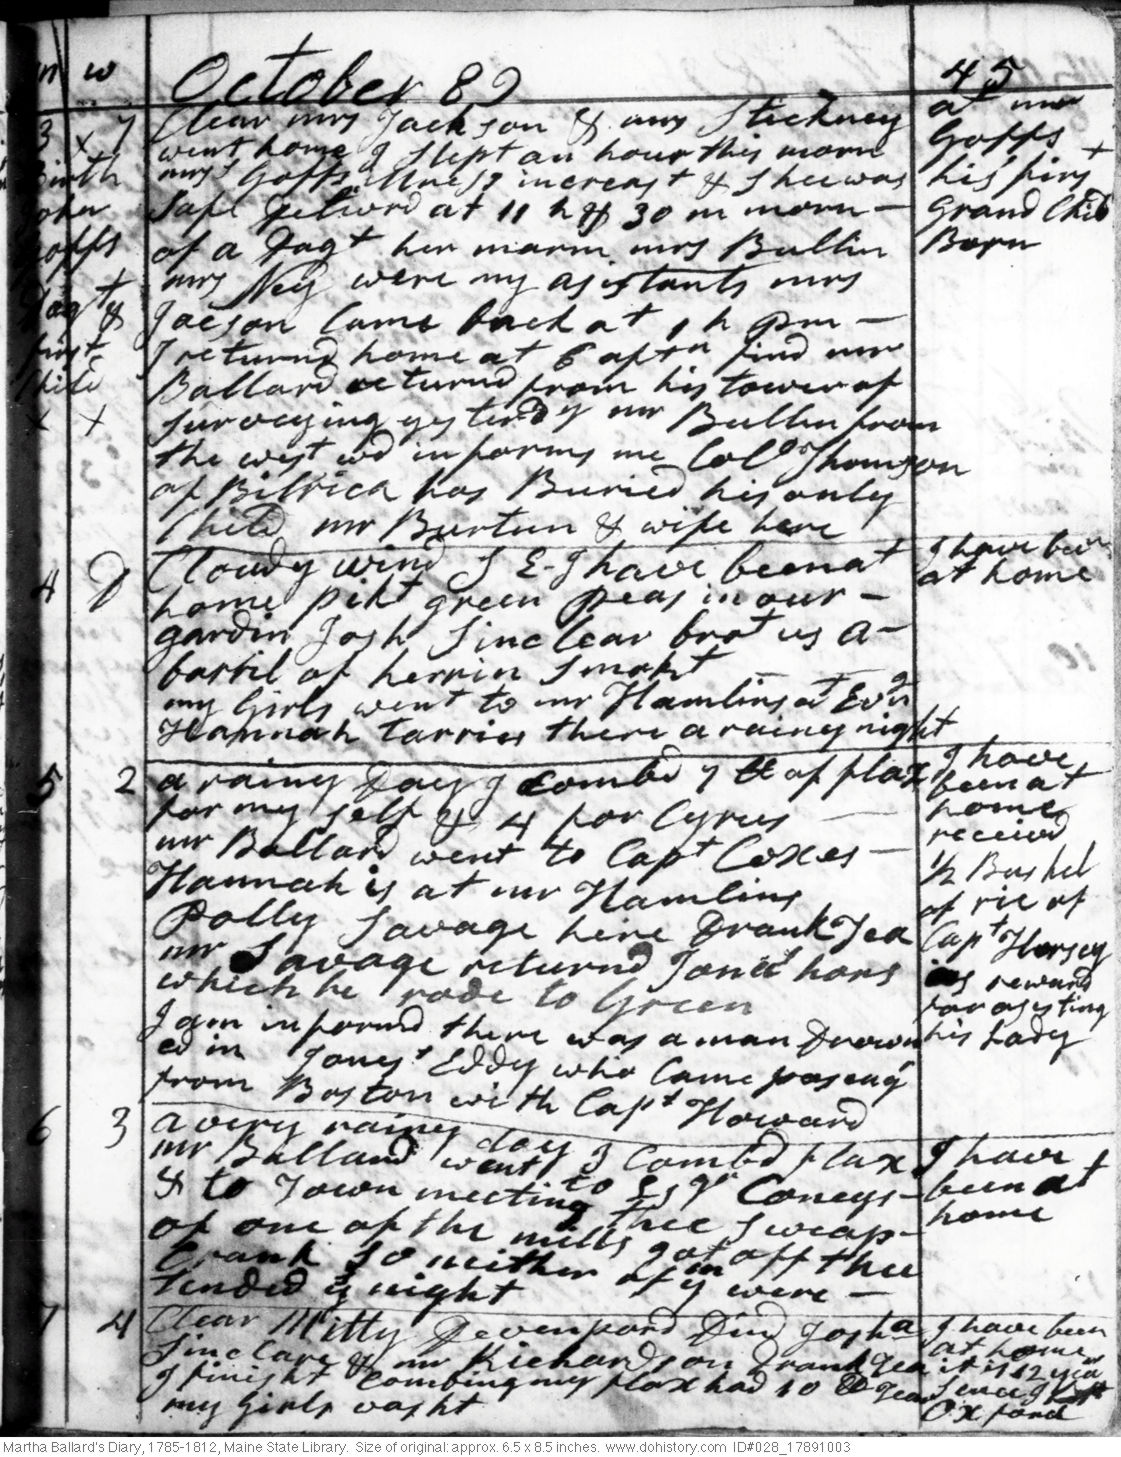 m w October 89 45
3 x 7 Clear mrs Jackson & mrs Stickney
went home I Slept an hour this morn
mrs Goffs illness increast & Shee was
Safe Deliverd at 11 h & 30 m morn –
of a Dagt her marm mrs Bullin
mrs Ney were my asistants mrs
Jacson Came back at 1 h pm –
I returnd home at 6 aftn find mr
Ballard returnd from his tower of
Surveying yesterdy mr Bullin from
the westwd informs me Colo Thomson
of Bilrica has Buried his only
Child mr Burtun & wife here
Birth
John
Goffs
Dagt &
first
Child
x x
at mr
Goffs
his first +
Grand Child
Born
4 D Cloudy wind S E – I have been at
home pikt green Peas in our –
gardin Josh Sinclear brot us a –
barril of herrin Smokt
my Girls went to mr Hamlins at Evng
Hannah tarries there a rainy night
I have been
at home
5 2 a rainy Day I Combd 7 lb of flax
for my self & 4 for Cyrus
mr Ballard went to Capt Coxes –
Hannah is at mr Hamlins
Polly Savage here Drank Tea
mr Savage returnd Jonat hors
which he rode to Green
I am informd there was a man Drown
ed in Jones' Eddy who Came paseng
from Boston with Capt Howard
I have
been at
home
receivd
1/2 Bushel
of rie of
Capt Hersey
as reward
for asisting
his Lady
6 3 a very rainy day I Combd flax
mr Ballard went to Esqr Coneys –
& to Town meeting thee Sweap –
of one of the mills got off thee
Crank So neither of ym were –
tended ys night
I have
been at
home
7 4 Clear Mitty Devenpord Died Josha
Sinclare & mr Richardson Drank Tea
I finisht Combing my flax had 10 lb
my Girls washt
I have been
at home
it is 12 years
Sence I left
Oxford
Martha Ballard's Diary, 1785-1812, Maine State Library. Size of original: approx. 6.5 x 8.5 inches. www.dohistory.com ID#028_17891003